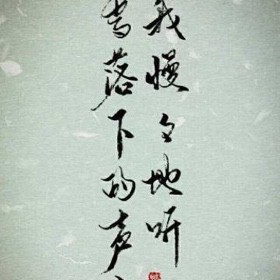 我慢々地听
雪落下的声音